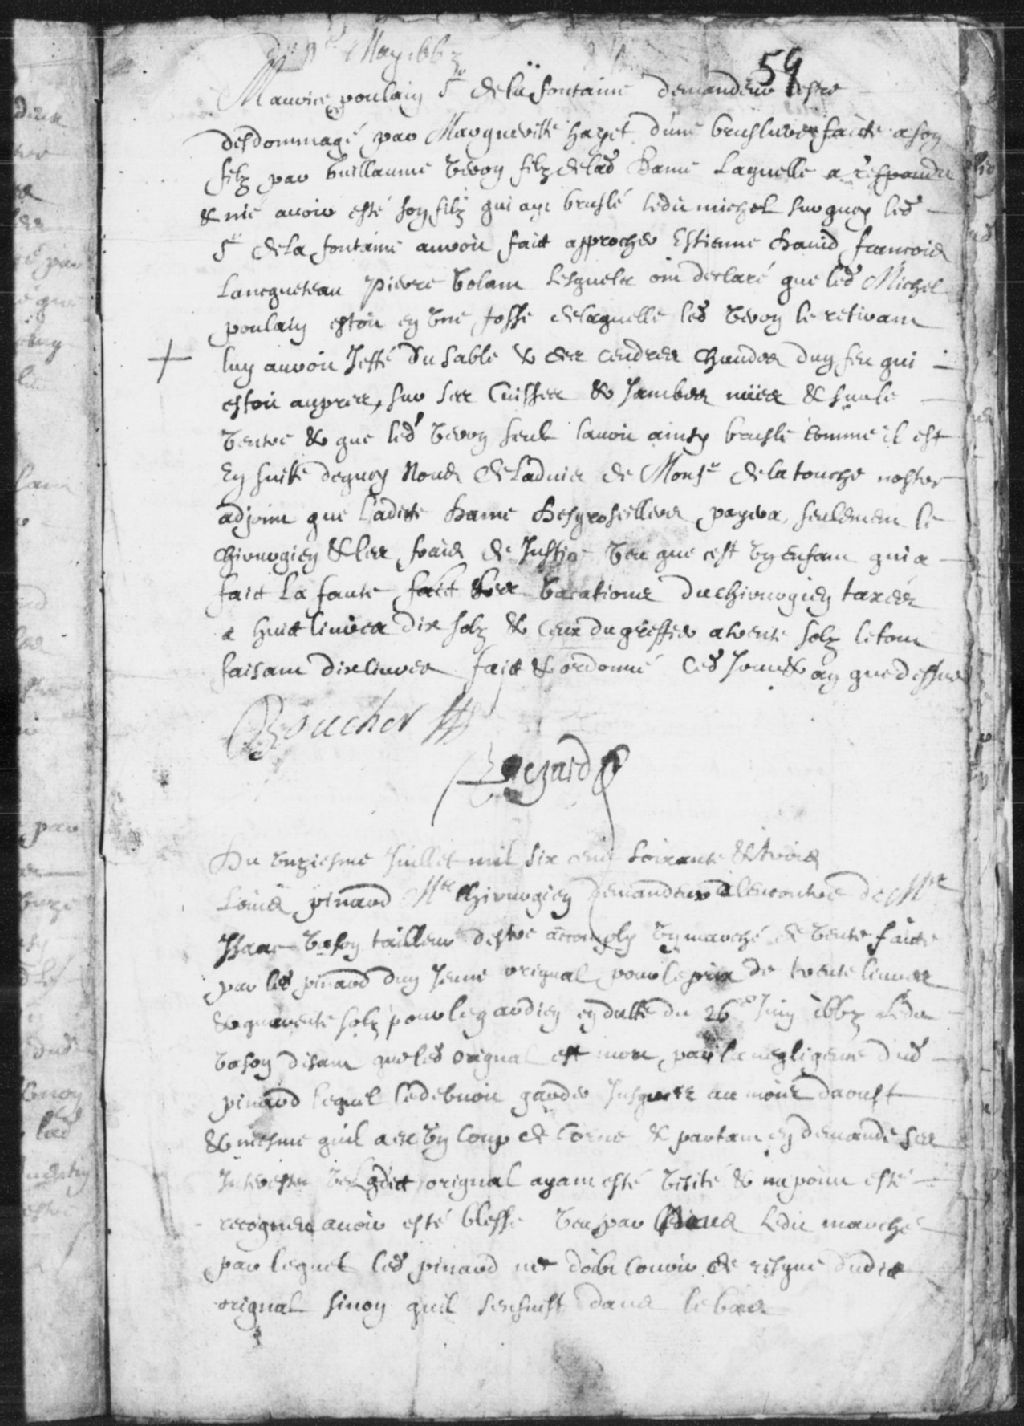 May 1663
59
Maurice poulain Sr de la fontaine demandeur destre
desdommagé par Margueritte hayet dune bruslure faitte a son
filz par Guillaume Véron filz de lad Dame Laquelle a respondu
& nie avoir esté son filz qui aye bruslé ledit michel surquoy led
Sr de la fontaine auroit fait approcher Estienne françois
Lancqueteau Pierre Lesquelz ont declaré que led Michel
poulain estoit en une fosse de laquelle led Veron le retirant
luy auroit Jetté du sable & des cendres chaudes dun feu qui
estoit aupres, sur ses Cuisses & Jambes nues & sur le
Ventre & que led Veron seul lavoit ainsy bruslé comme il est
En suitte dequoy Nous de Ladvis de Monsr de la touche nostre
adjoint que Laditte Dame Desgroseilliers payera seulement le
chirurgien & les frais de Justice Veu que cest un enfant qui a
fait La faute les Vacations du chirurgien taxées
a huit livres dix solz & ceux du greffier a trente solz le tout
faisant dix livres fait & ordonné Ced Jour & an que dessus
Boucher
Du unziesme Juillet mil six cent soixante & trois
Louis pinard Mre Chirurgien demandeur a lencontre de Mre
Isaac tailleur destre accomply un marché de Vente faitte
par led pinard dun Jeune orignal pour le prix de trente livres
& quarente solz pour le gardien en datte du 26e Juin 1663 Ledit
disant que led orignal est mort par la negligence dud
pinard lequel le debvoit garder Jusques au mois daoust
& mesme quil a eu un Coup de Corne & partant en demande ses
Interestz ledit orignal ayant esté Visité & na point esté
recogneu avoir esté blessé Veu par Nous Ledit marché
par lequel led pinard ne doibt Courir de risque dudit
orignal sinon quil sensuist dans le bois